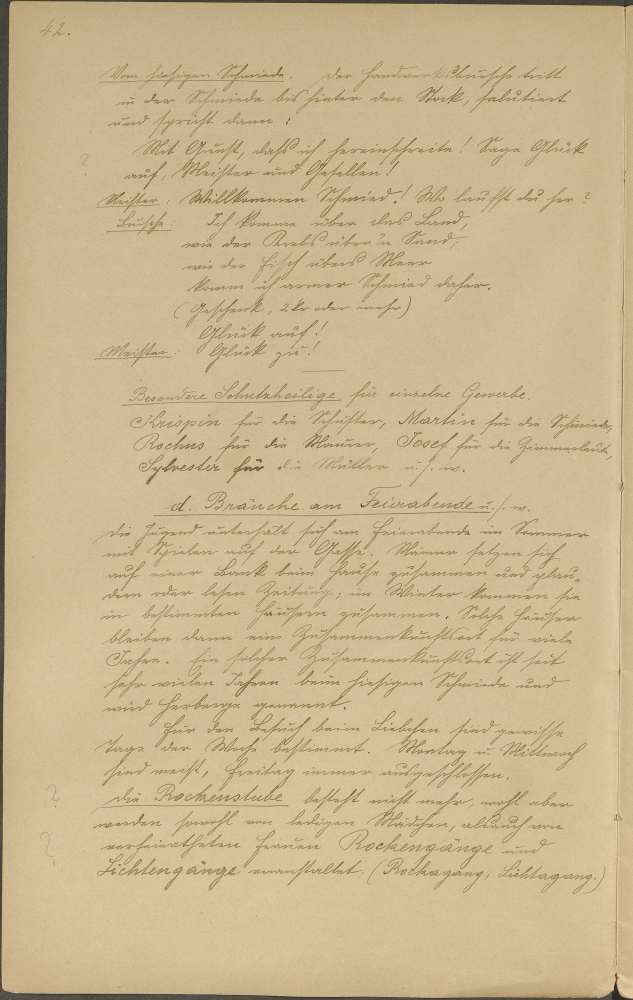 42.
Vom hiesigen Schmiede. Der Handwerksbursche tritt
in der Schmiede bis hinter den Stock, salutiert
und spricht dann:
Mit Gunst, dass ich hereinschreite! Sage Glück
? auf, Meister und Gesellen!
Meister: Willkommen Schmied! Wo laufst du her?
Bursche: Ich komme über das Land,
wie der Krebs über'n Sand,
wie der Fisch übers Meer
komm ich armer Schmied daher.
(Geschenk, 2 kr oder mehr)
Glück auf!
Meister: Glück zu!
Besondere Schutzheilige für einzelne Gewerbe.
Krispin für die Schuster, Martin für die Schmiede,
Rochus für die Maurer, Josef für die Zimmerleute,
Sylvester für die Müller u. s. w.
d. Bräuche am Feierabende u. s. w.
Die Jugend unterhält sich am Feierabende im Sommer
mit Spielen auf der Gasse. Männer setzen sich
auf einer Bank beim Hause zusammen und plau-
dern oder lesen Zeitung; im Winter kommen sie
in bestimmten Häusern zusammen. Solche Häuser
bleiben dann ein Zusammenkunftsort für viele
Jahre. Ein solcher Zusammenkunftsort ist seit
sehr vielen Jahren beim hiesigen Schmiede und
wird Herberge genannt.
Für den Besuch beim Liebchen sind gewisse
Tage der Woche bestimmt. Montag u. Mittwoch
sind meist, Freitag immer ausgeschlossen.
? Die Rockenstube besteht nicht mehr, wohl aber
werden sowohl von ledigen Mädchen, als auch von
? verheiratheten Frauen Rockengänge und
Lichtengänge veranstaltet. (Rockagang, Lichtagang.)